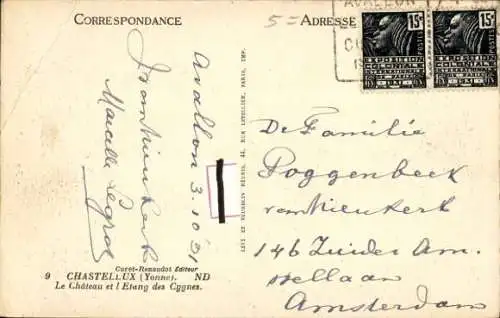 CORRESPONDANCE
5 =
ADRESSE
AVALLON
15c
15c
POSTES
EXPOSITION
COLONIALE
INTERNATIONALE
PARIS 1931
EXPOSITION
COLONIALE
INTERNATIONALE
PARIS 1931
Avallon 3.10 '31
Marcelle Legros
LEVY ET NEURDEIN RÉUNIS, 44, RUE LETELLIER, PARIS, IMP.
De Familie
Poggenbeek
van Nieukerk
146 Zuider Am-
stellaan
Amsterdam
Carot-Renaudot Editeur
9 CHASTELLUX (Yonne). ND
Le Château et l'Etang des Cygnes.